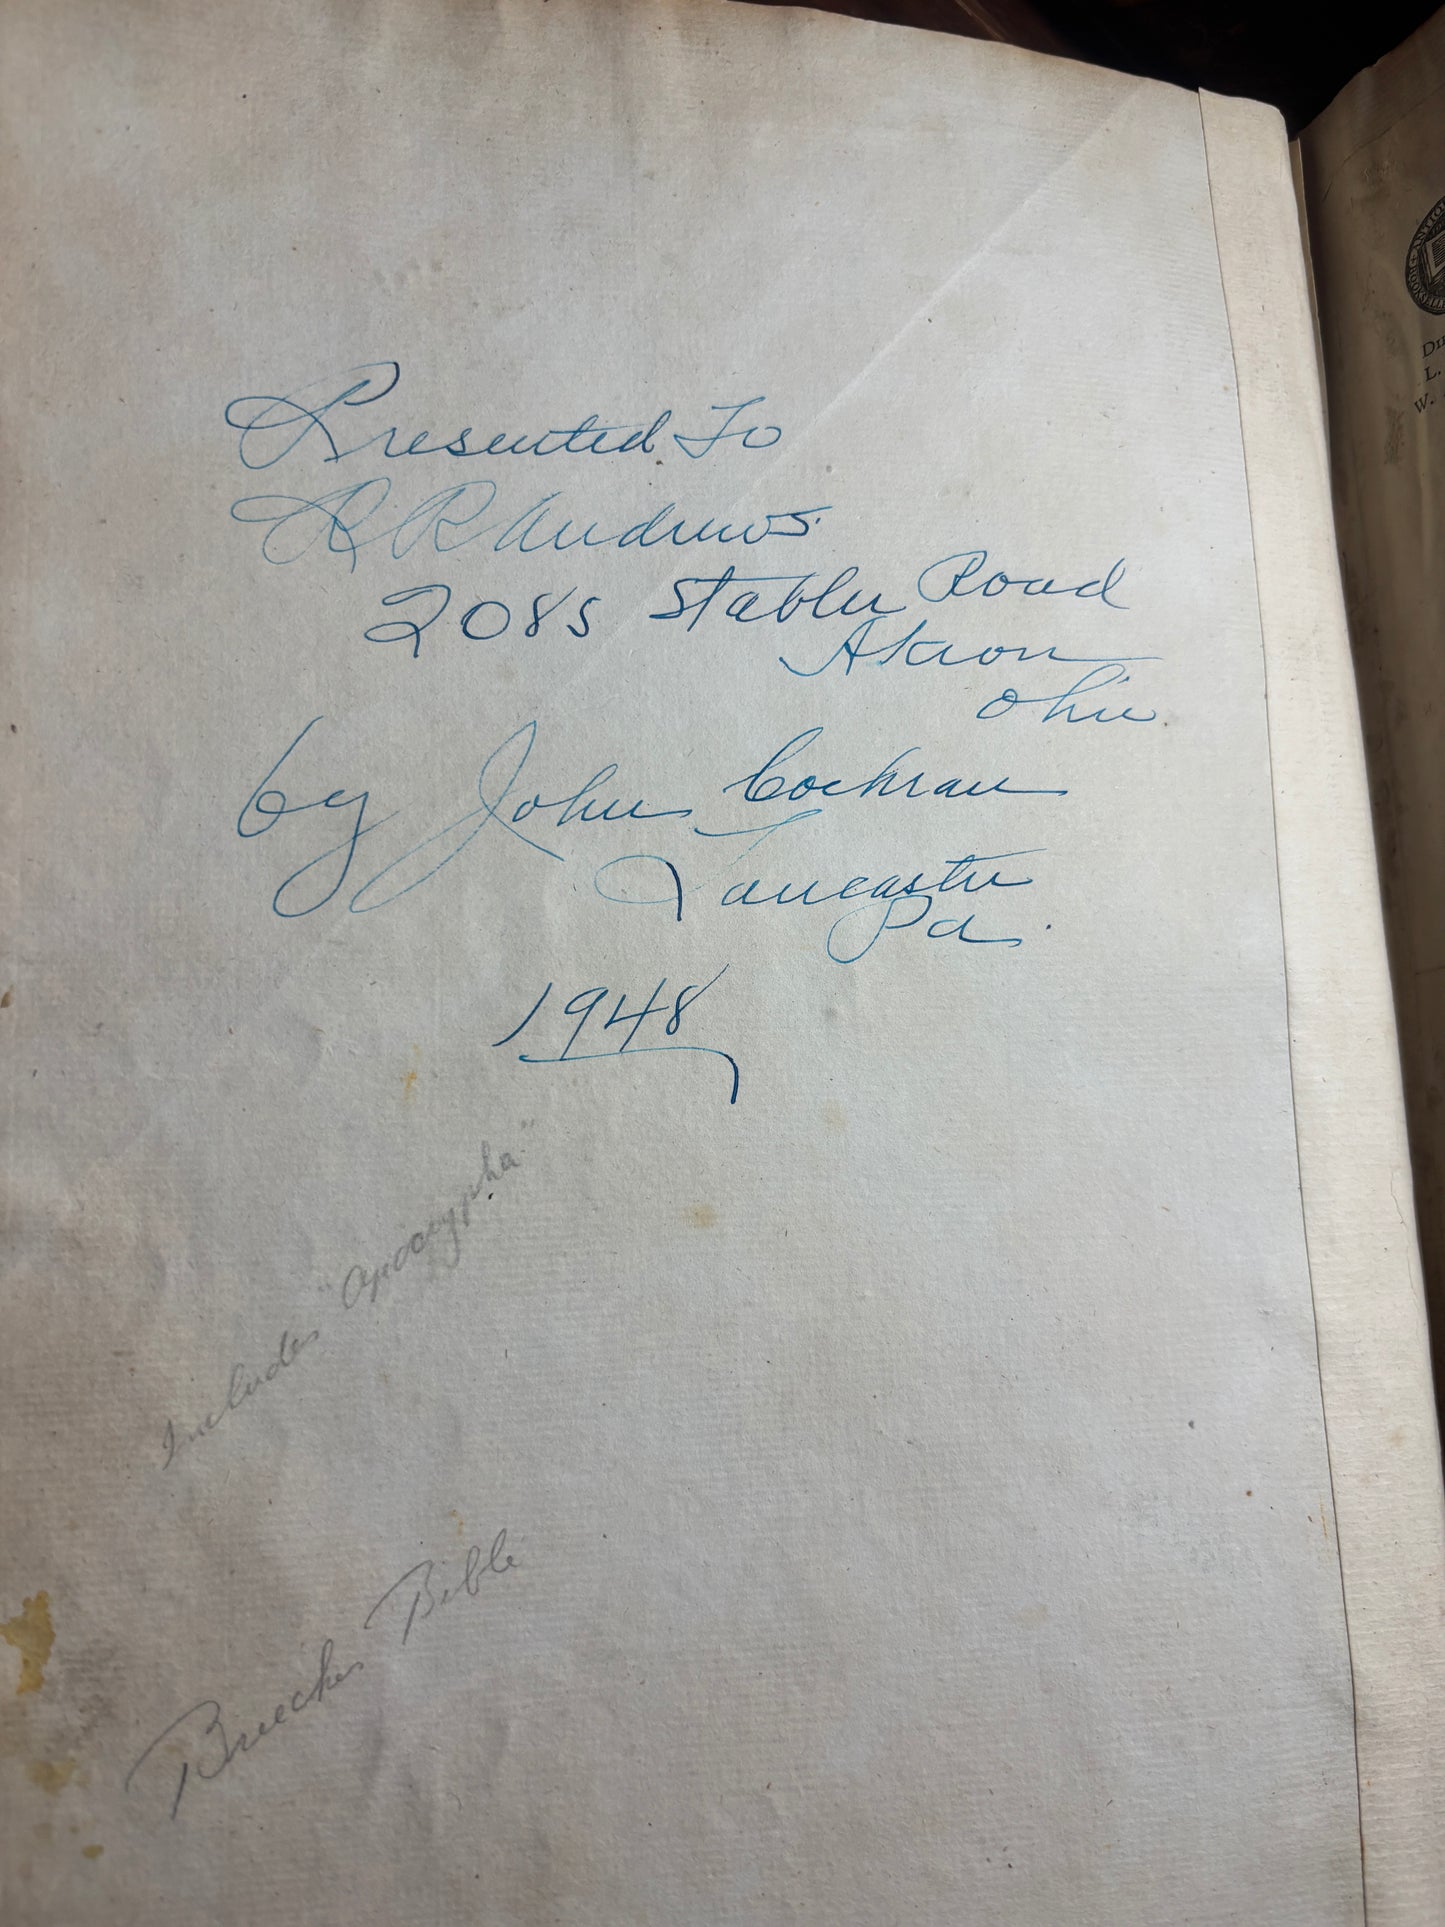 Presented To
R R Andrews.
2085 Stabler Road
Akron
Ohio
by John Cochran
Lancaster
Pa.
1948
Includes "Apocrypha"
Breeches Bible
ANTIQ
BOOKSELL
L.
W.